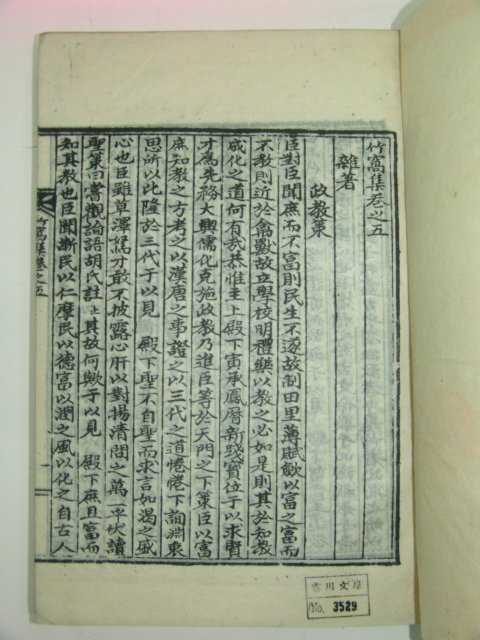 竹窩集卷之五
雜著
政敎策
臣對臣聞庶而不富則民生不遂故制田里薄賦歛以富之富而
不敎則近於禽獸故立學校明禮樂以敎之必如是則其於知敎
成化之道何有哉恭惟主上 殿下寅承鳳曆新踐寶位于以求賢
才爲先務大興儒化克施政敎乃進臣等於天門之下策臣以富
庶知敎之方考之以漢唐之事證之以三代之道惓惓下詢淵衷
思所以比隆於三代于以見 殿下聖不自聖而求言如渴之盛
心也臣雖草澤 才敢不披露心肝以對揚清問之萬一乎伏讀
聖策曰嘗觀論語胡氏註 止 其故何歟于以見 殿下庶且富而
知其敎也臣聞漸民以仁摩民以德富以潤之風以化之自古人
竹窩集卷之五
雪川文庫
No. 3529